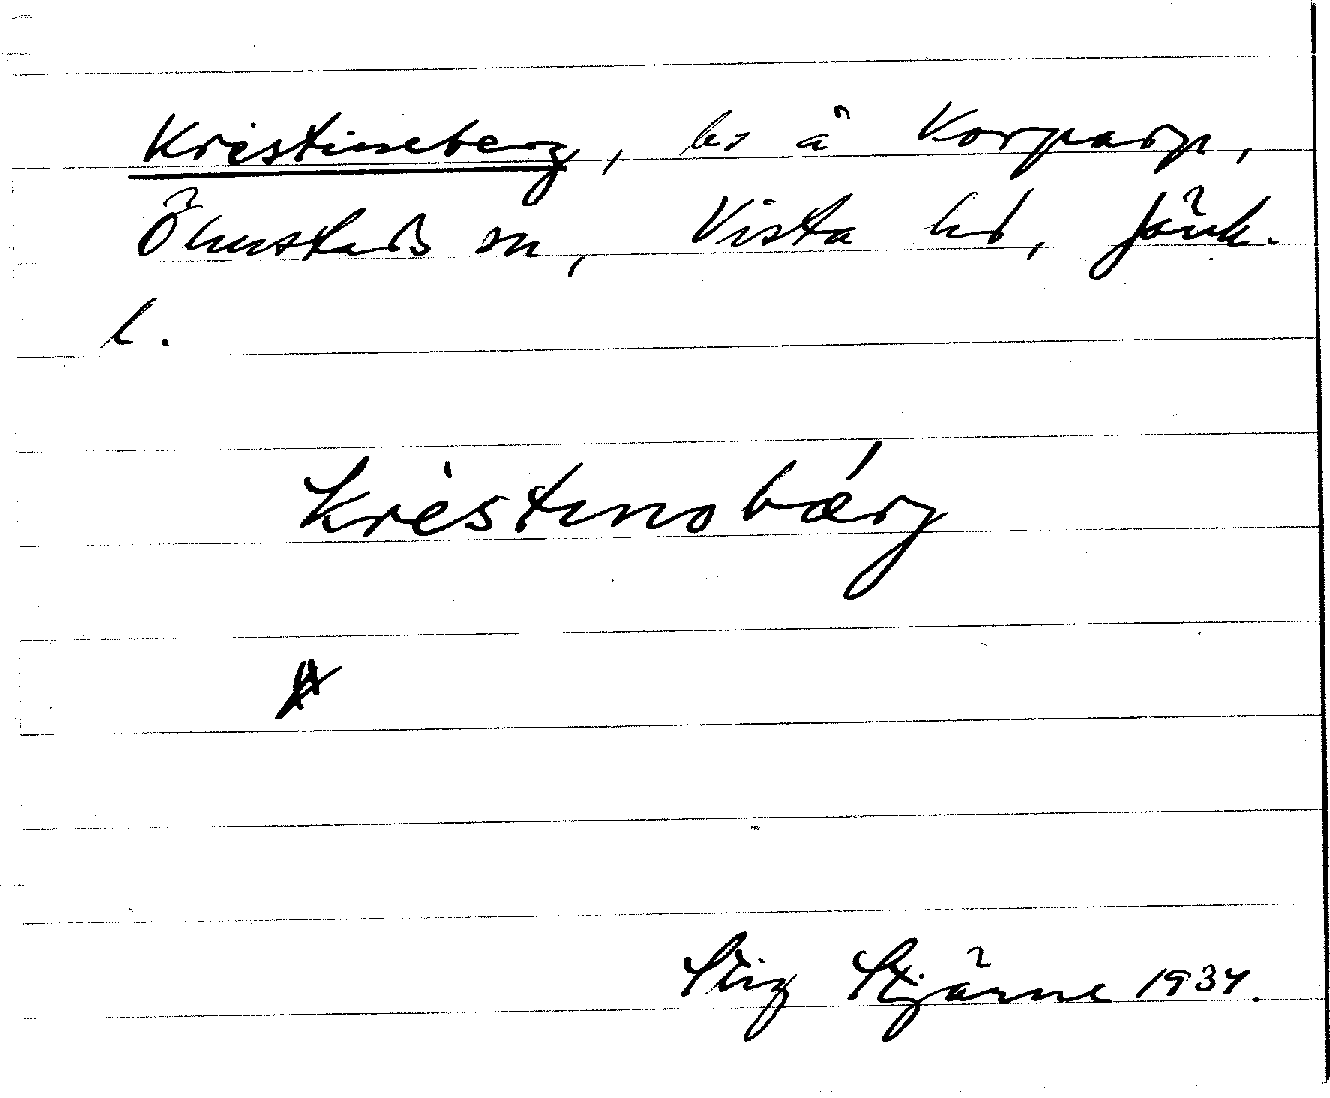 Kristineberg, ls å Korparp,
Ölmstads sn, Vista hd, Jönk.
l.
krèstɩnobǽrg
A
Stig Stjärne 1934.